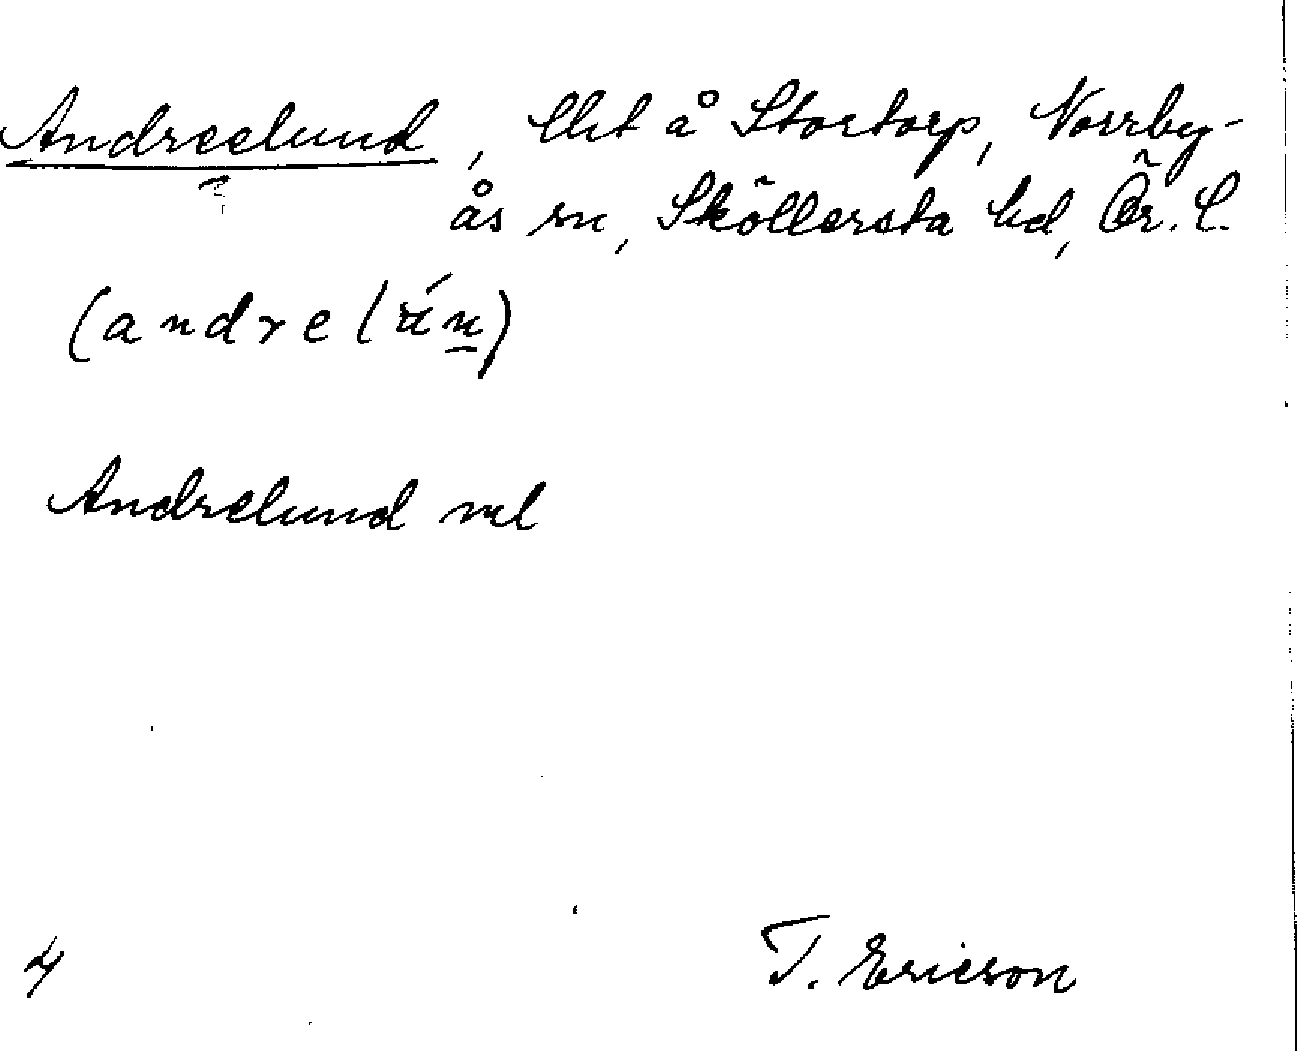 Andreelund, lht å Stortorp, Norrby-
?
ås sn, Sköllersta hd, Ör. l.
(andrelún)
Andrelund ml
4
T. Ericson